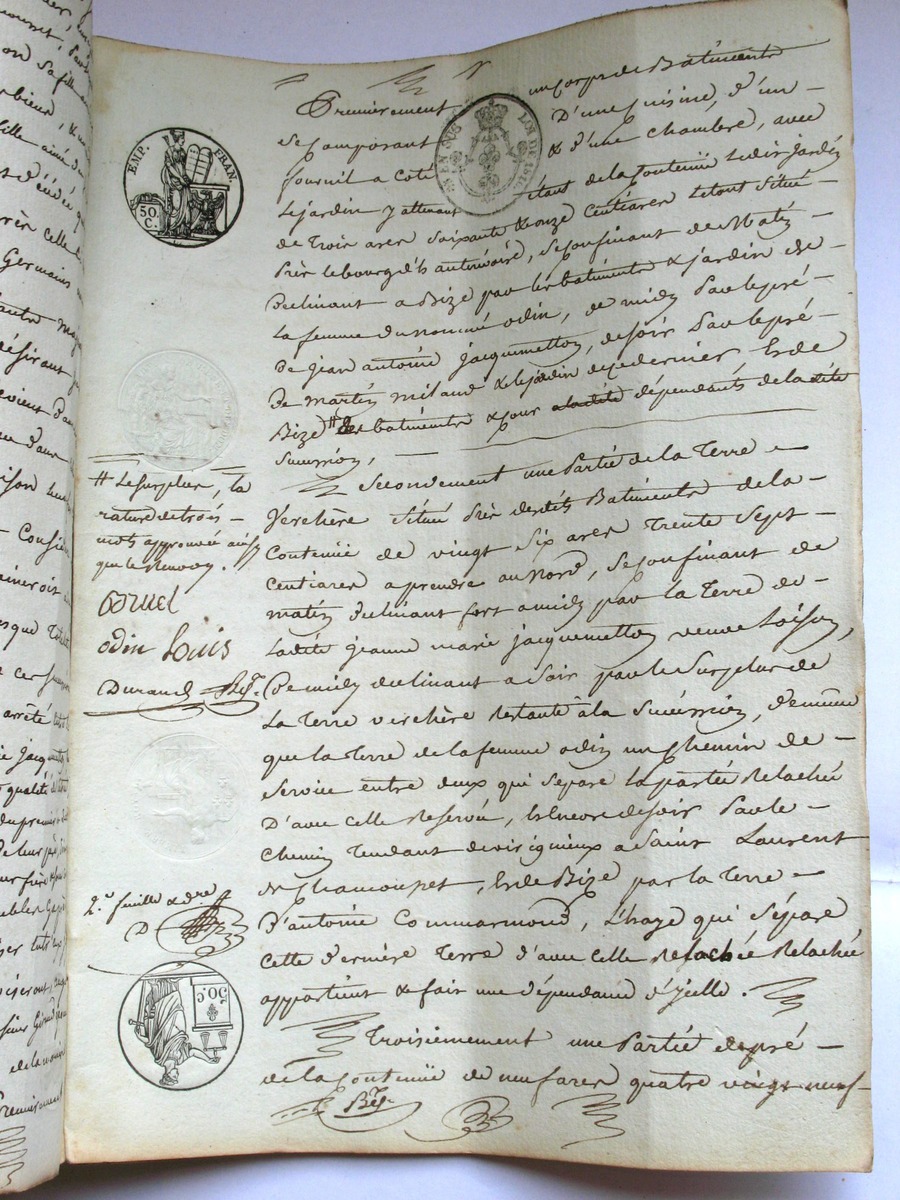 Premierement un corps de Batiments
se Composant D'une Cuisine, d'un
fournil a Coté & d'une chambre, avec
Le jardin y attenant étant de la Contenüe Ledit Jardin
de Trois ares Soixante & onze Centiares Le tout Situé
Près le bourg d' antoine, Se Confinant de Matin
Declinant a Bize par les batiments & jardin de
La femme du nommé odin, de midy Par le pré
De jean antoine jacquemetton, de soir Par le pré
De martin miland & le jardin de ce dernier & de
Bize # des batiments & Cour a la dite dépendants de la dite
Succession,
Secondement une Partie de la Terre
Verchère Située Près desdits Batiments de la
Contenüe de vingt Six ares Trente Sept
Centiares a prendre au Nord, Se Confinant de
matin Declinant fort a midy par la Terre de
Ladite jeanne marie jacquemetton veuve Loison,
De midy declinant a Soir par le Surplus de
La Terre verchère Restante à la Succession, De même
que la Terre de la femme odin un Chemin de
Service entre deux qui Sépare la partie Relachée
D'avec celle Reservée, & Encore de soir Par le
Chemin Tendant de virigneux a Saint Laurent
& Chamousset, & de Bize par la Terre
D'antoine Commarmond, L'haye qui Sépare
Cette derniere Terre d'avec celle Relachée Relachée
appartient & fait une dépendance d'Icelle.
Troisiemement une Partie de pré
de la Contenüe de neuf ares quatre vingt neuf
EMP. FRAN.
50 C.
# Le Surplus, la
rature de trois
mots approuvée ainsy
que le Renvoy.
odin Louis
Durand
2.e feuille &
50 C.